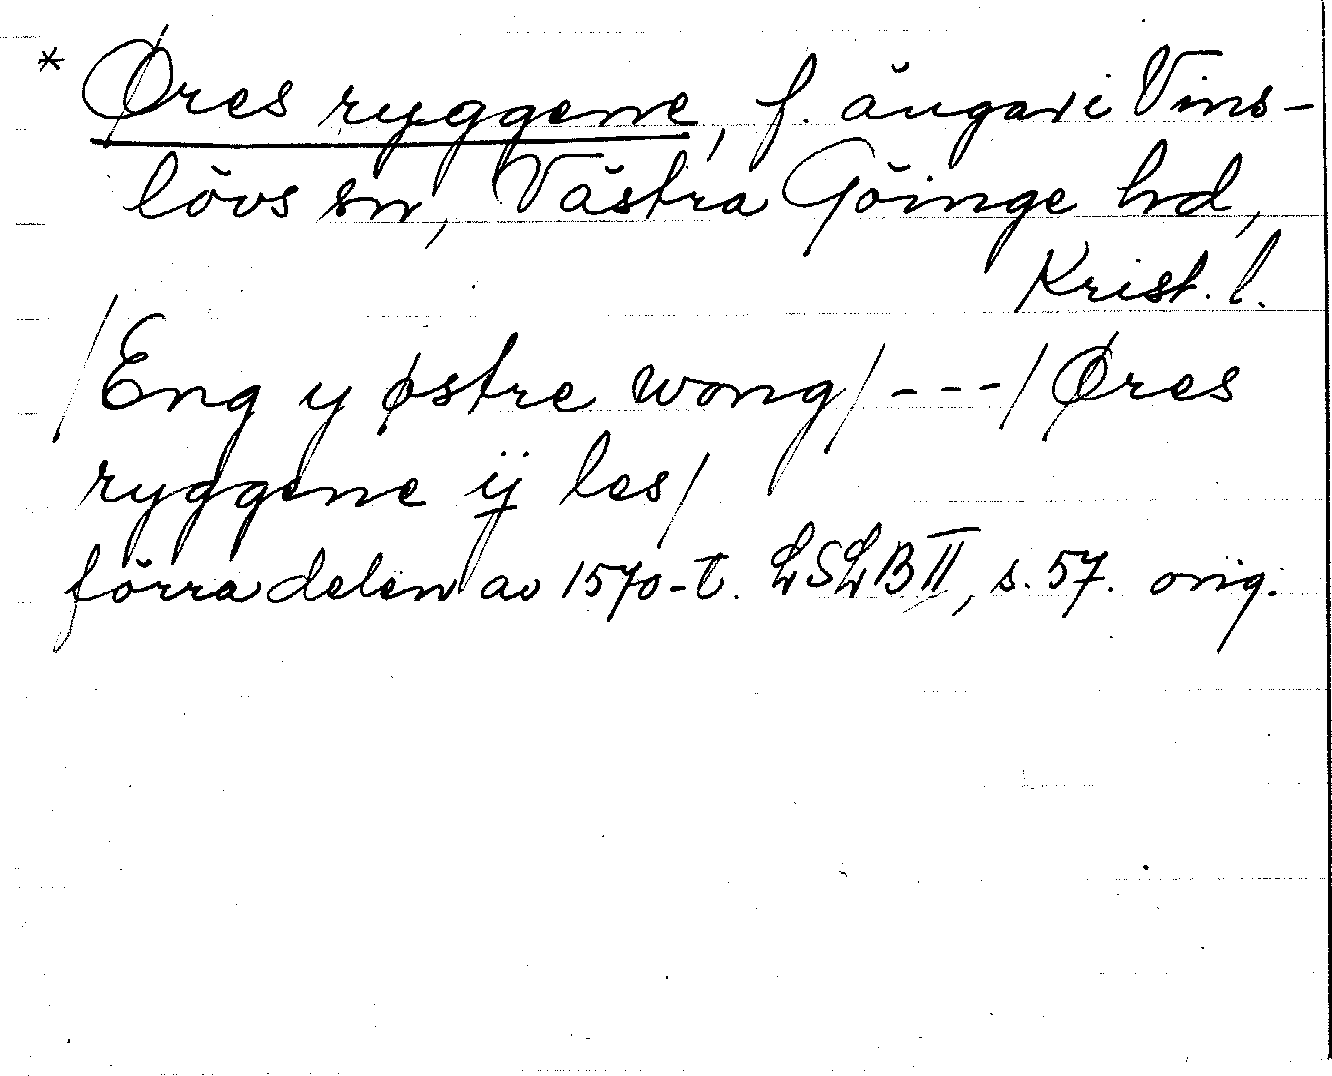 * Øres ryggene, f. ängar i Vins-
lövs sn, Västra Göinge hd,
Krist. l.
/Eng y østre wong/ --- / Øres
ryggene ij les/
förra delen av 1570-t. LSLB II, s. 57. orig.